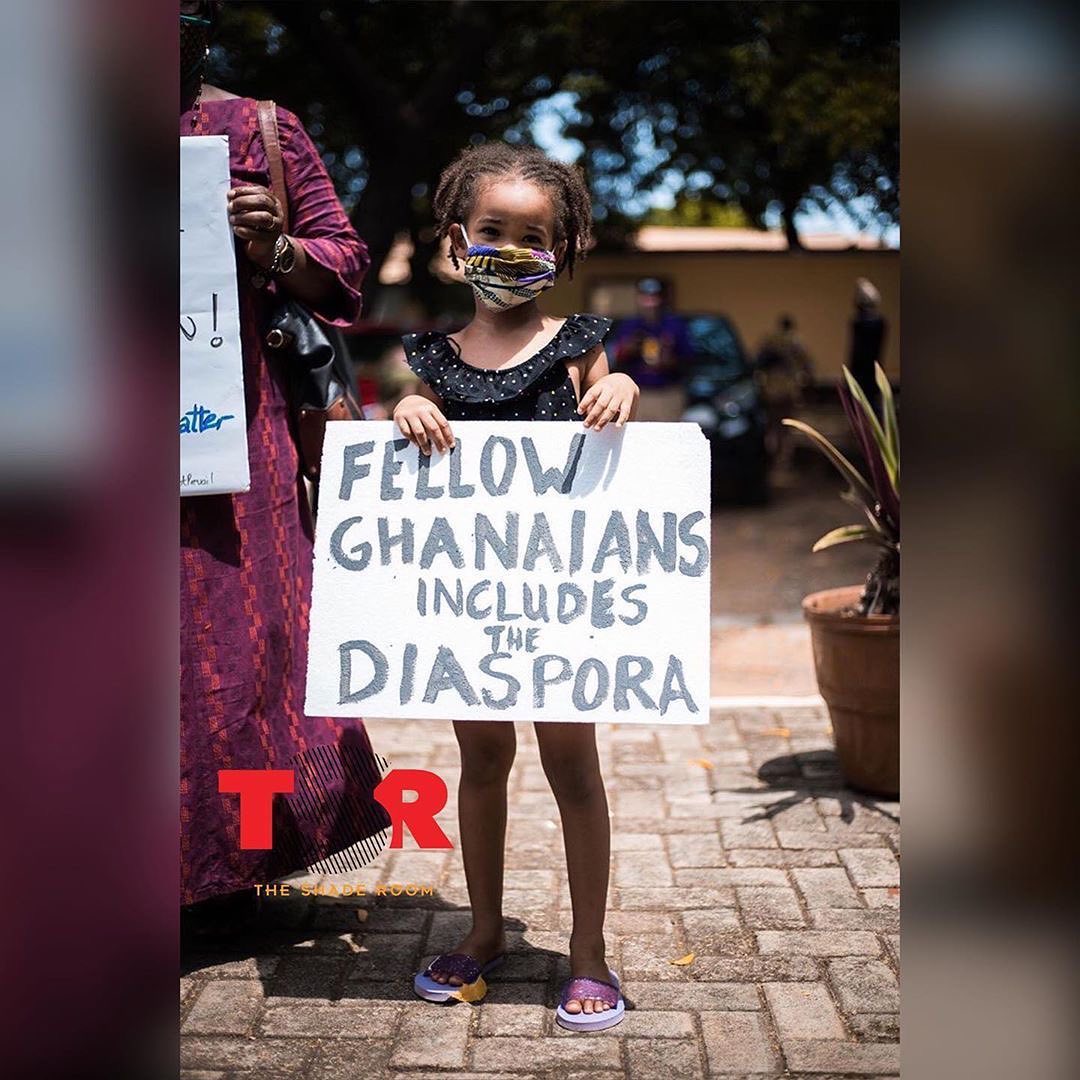 !
atter
FELLOW
GHANAIANS
INCLUDES
THE
DIASPORA
TSR
THE SHADE ROOM